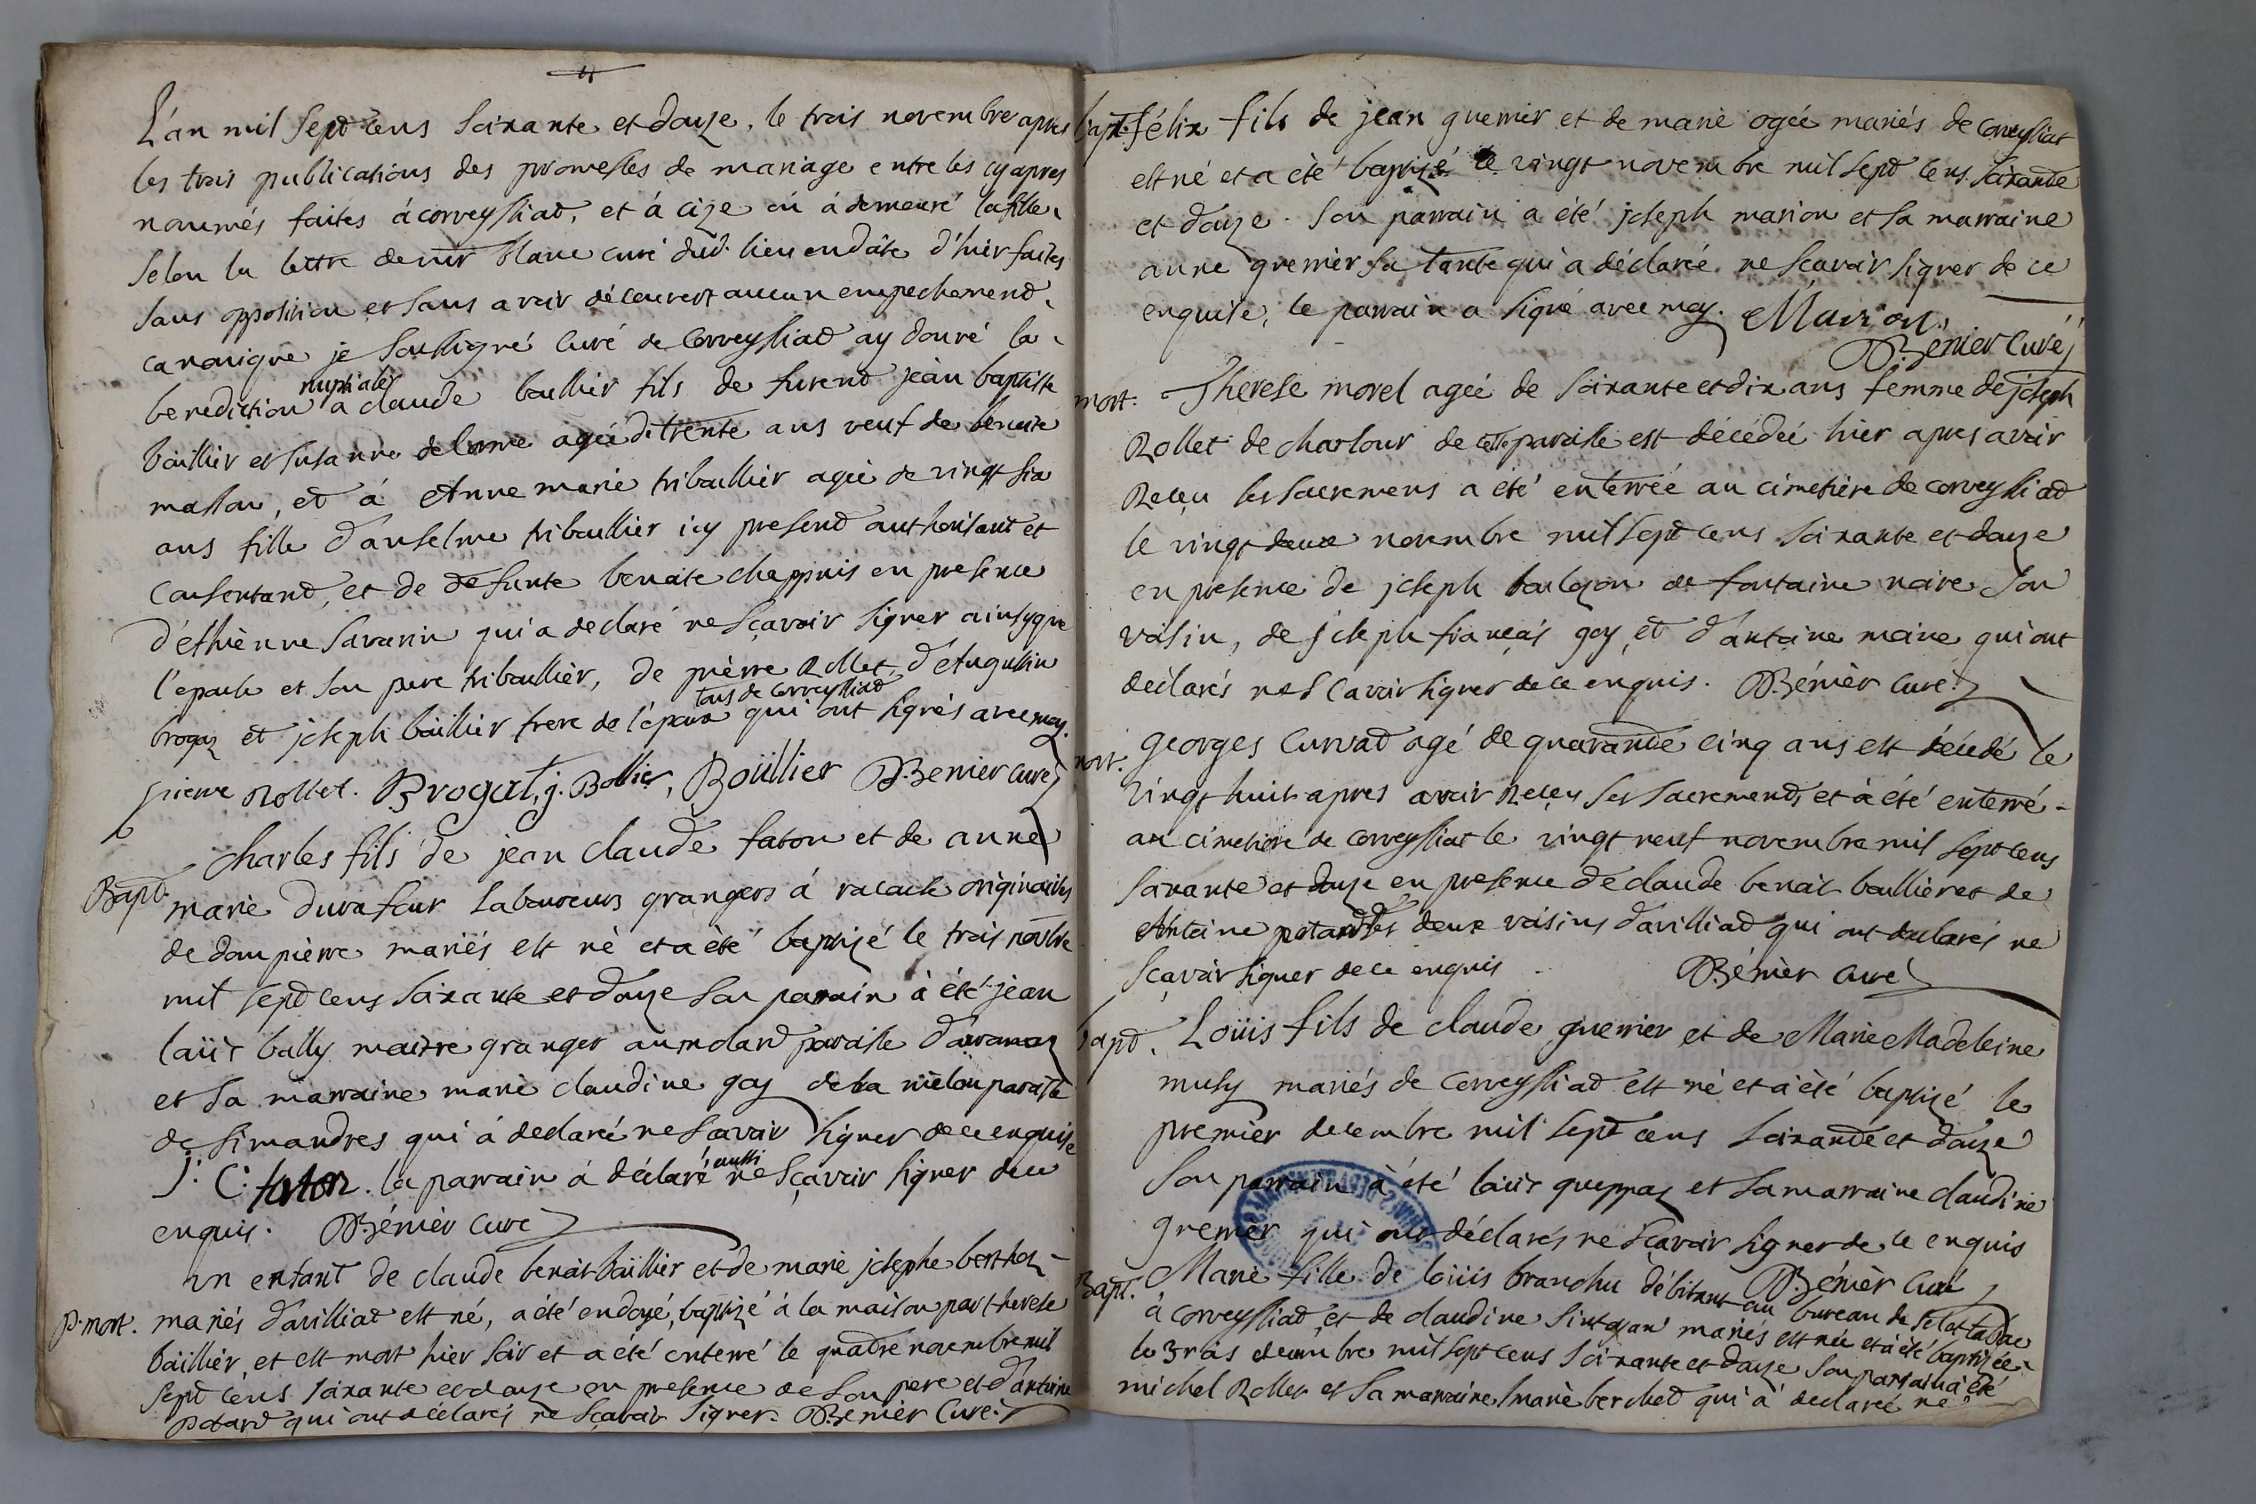 L'an mil sept cens soixante et douze, le trois novembre apres
les trois publications des promesses de mariage entre les cy apres
nommés faites à corveyssiad, et à cize où à demeuré la fille
selon la lettre de mr blanc curé dud. lieu en dâte d'hier faites
sans opposition et sans avoir découvert aucun empechemend
canonique je soussigné curé de Corveyssiad ay donné la
benediction nuptiale à claude boullier fils de furend jean baptiste
boüllier et susanne delorme agée de trente ans veuf de benoite
masson, et à Anne marie triboullier agée de vingt six
ans fille d'anselme triboullier icy presend authorisant et
consentand, et de defunte benoite chappuis en presence
d'éthiènne savarin qui a declaré ne sçavoir signer ainsy que
l'epouse et son pere triboullier, de pièrre Rollet, d'Augustin
brogaz et joseph boüllier frere de l'époux tous de corveyssiad qui ont signés avec moy.
pierre rollet. Brogat, j. Bollier, Boüllier Bénier curé
Bapt. Charles fils de jean claude faton et de anne
marie dura four laboureurs grangers à racouse originaires
de dompierre mariés est né et a été baptizé le trois novbre
mil sept cens soixante et douze son parain à été jean
loüis bally maitre granger au molard paroisse d'aromaz
et sa marraine marie claudine goy de la niélou paroisse
de simandres qui à declaré ne scavoir signer de ce enquise
J: C: faton. le parrain à déclaré aussi ne sçavoir signer de ce
enquis. Bénièr curé
un enfant de claude benoit boüllier et de marie josephe berthoz
p. mort. mariés d'avilliad est né, a été endoyé, baptizé à la maison par therese
boüllièr, et est mort hier soir et a été enterré le quatre novembre mil
sept cens soixante et douze en presence de son pere et d'antoine
potard qui ont déclarés ne sçavoir signer. Bénièr curé.
bapt. félix fils de jean guerrier et de marie ogée mariés de corveyssiat
est né et a été baptizé le vingt novembre mil sept cens soixante
et douze. son parrain a été joseph marion et sa marraine
anne grenier sa tante qui a déclarée ne scavoir signer de ce
enquise, le parrain a signé avec moy. Marion.
Bénier curé
mort. Therese morel agée de soixante et dix ans femme de joseph
Rollet de charlour de cette paroisse est décédée hier apres avoir
Reçu les sacremens a été enterrée au cimetière de corveyssiad
le vingt deux novembre mil sept cens soixante et douze
en presence de joseph boulçon de fontaine noire son
voisin, de joseph françois goy, et d'antoine moine qui ont
déclarés ne scavoir signer de ce enquis. Bénièr curé
mort. georges curvad agé de quarante cinq ans est décédé le
vingt huit apres avoir Reçu ses sacremends et à été enterré
au cimetière de corveyssiat le vingt neuf novembre mil sept cens
soixante et douze en presence de claude benoit boullier et de
Antoine potard tous deux voisins d'avilliad qui ont declarés ne
sçavoir signer de ce enquis Bénièr curé
bapt. Loüis fils de claude guerrier et de Marie Madeleine
musy mariés de corveyssiad est né et a été baptizé le
premier decembre mil sept cens soixante et douze
son parrain à été loüis gueppaz et sa marraine claudine
grenier qui ont déclarés ne sçavoir signer de ce enquis
Bénièr curé
Bapt. Marie fille de loüis branchu débitant au bureau de sel et tabac
à corveyssiad, et de claudine mariés est née et à été baptizée
le 3 decembre mil sept cens soixante et douze son parrain à été
michel Rollet et sa marraine marie berchod qui à declarée ne